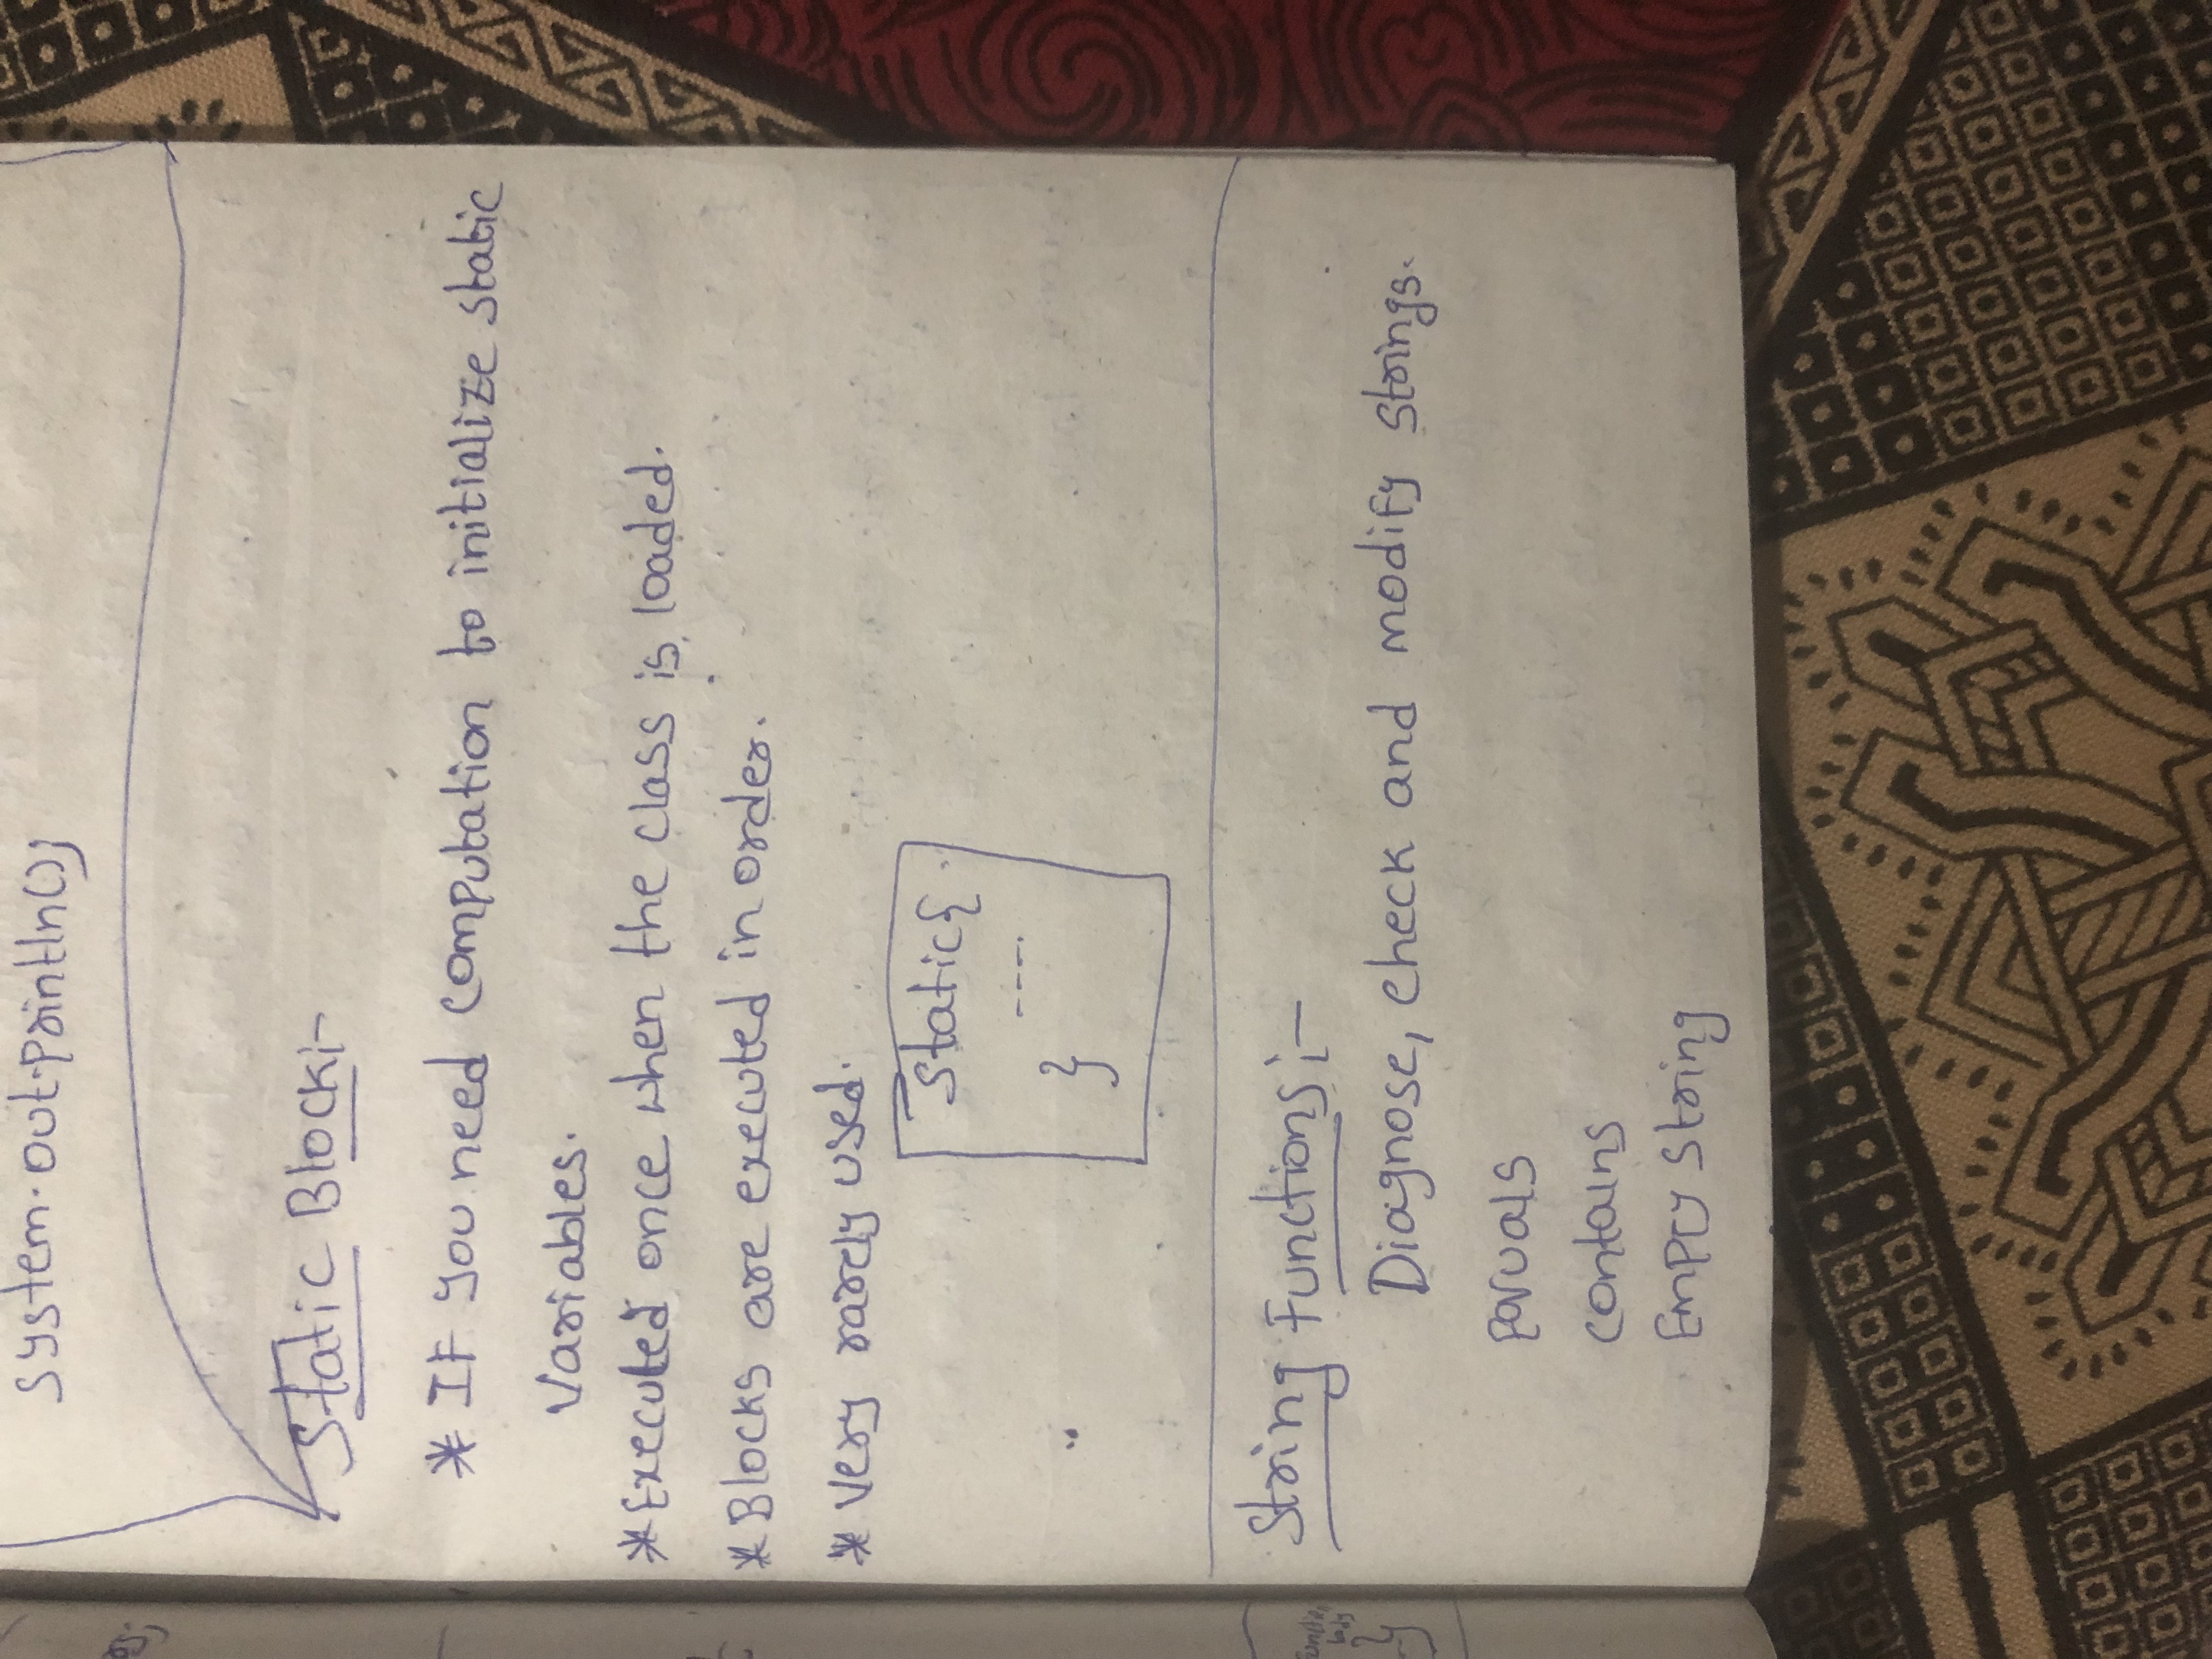 system.out.println();
Static Block:-
* IF you need computation to initialize static
variables.
* Executed once when the class is loaded.
* Blocks are executed in order.
* Very rarely used.
static{
----
}
String Functions:-
Diagnose, check and modify strings.
contains
Empty string
function
body
}